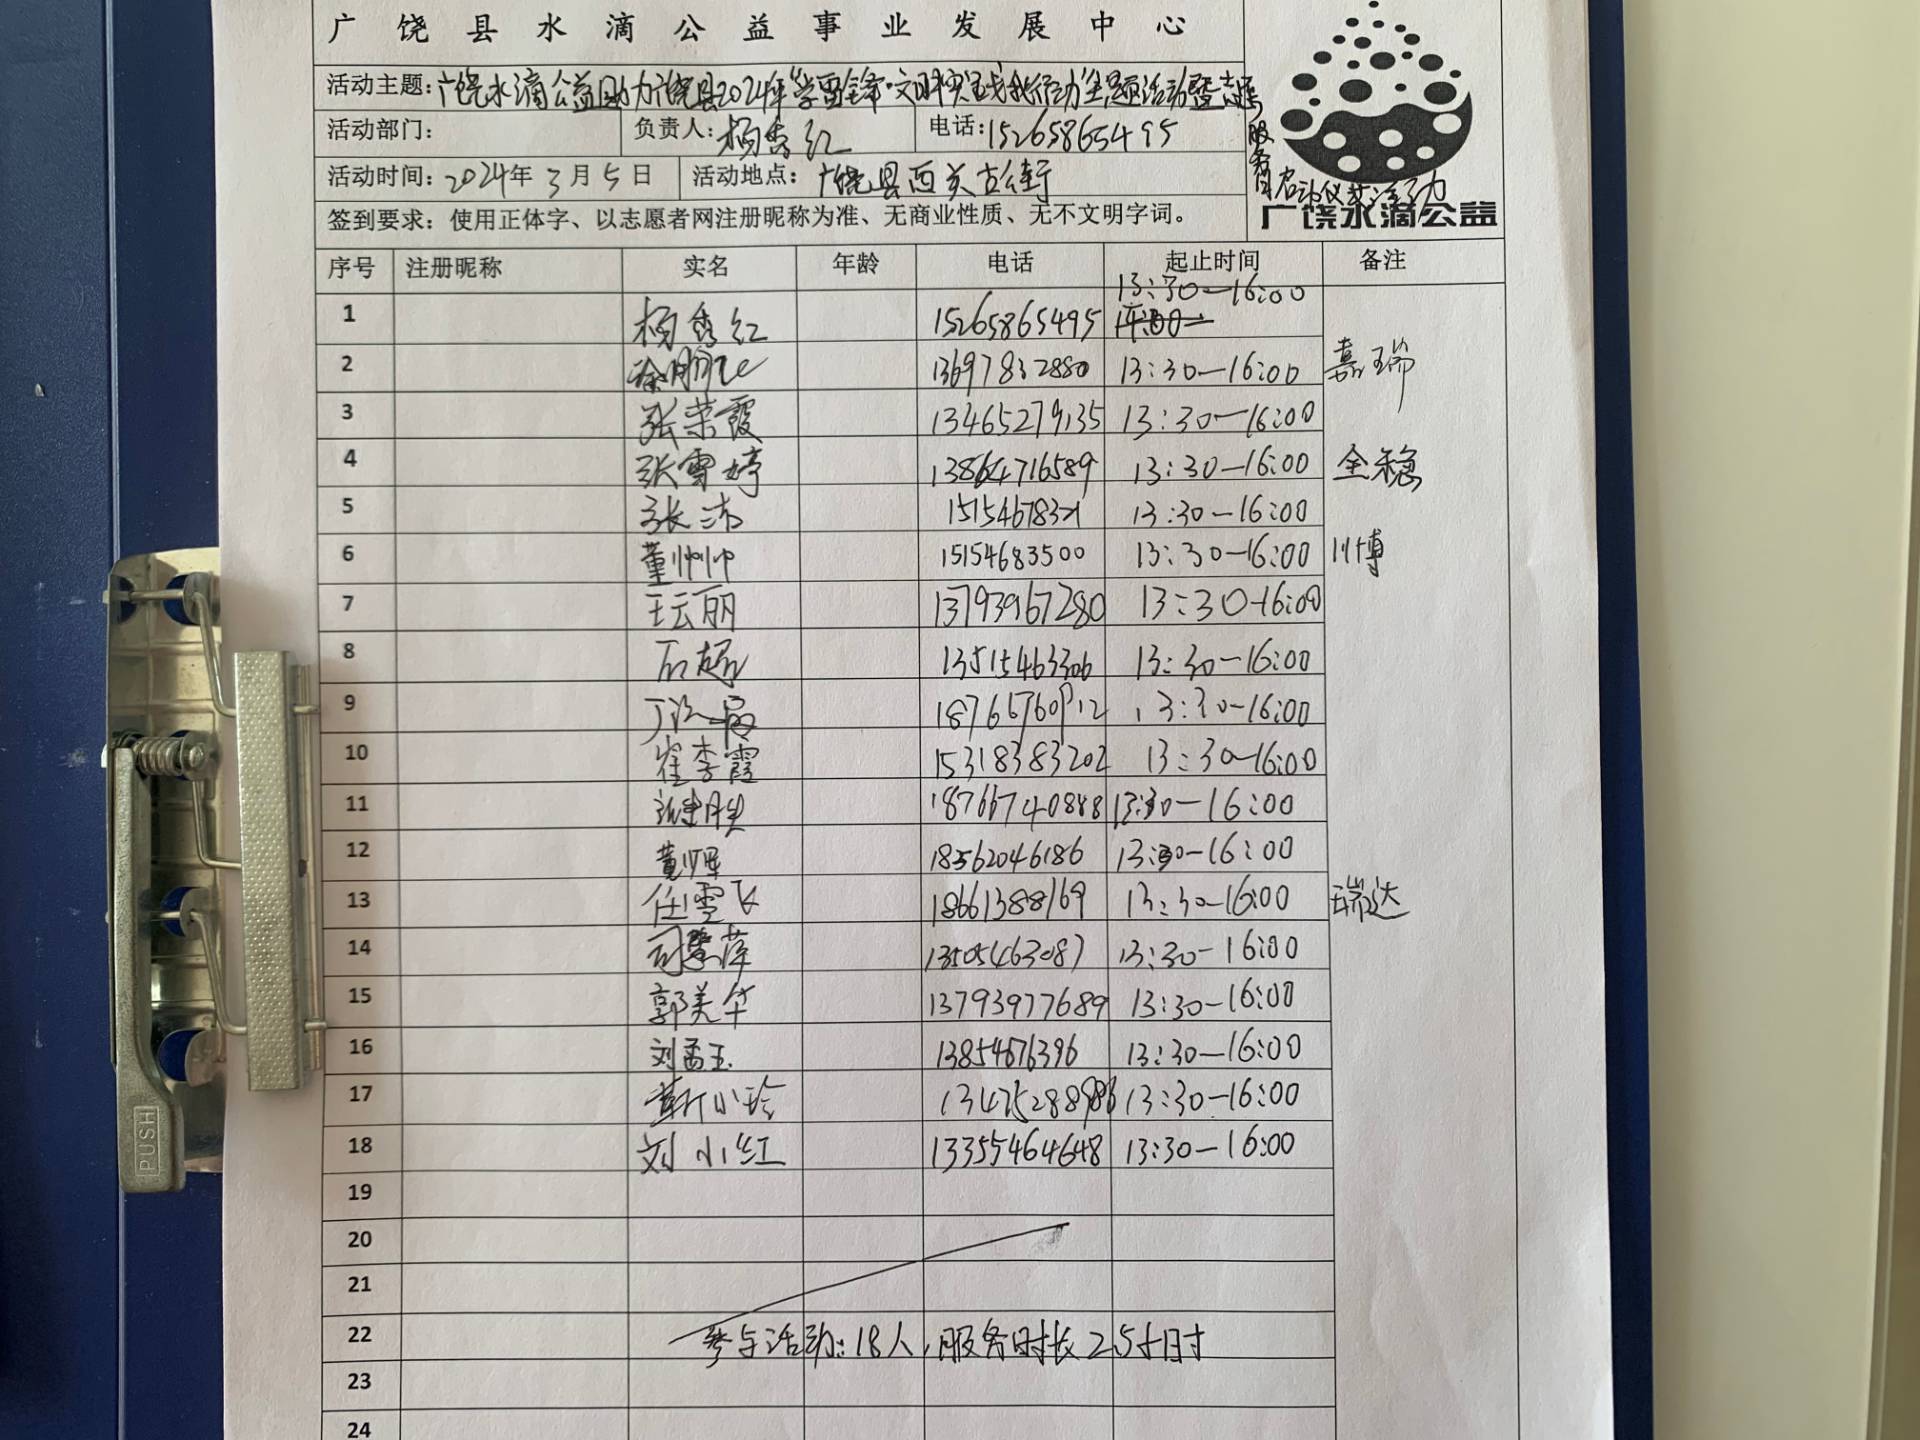 广饶县水滴公益事业发展中心
活动主题:广饶水滴公益助力广饶县2024年"学雷锋·文明实践我行动"主题活动暨志愿
服务启动仪式活动
活动部门: 负责人:杨秀红 电话:15265865495
活动时间:2024年3月5日 活动地点:广饶县西关古街
广饶水滴公益
签到要求:使用正体字、以志愿者网注册昵称为准、无商业性质、无不文明字词。
序号 注册昵称 实名 年龄 电话 起止时间 备注
1 杨秀红 15265865495 13:30—16:00
2 13697832880 13:30—16:00 嘉瑞
3 张荣霞 13465279135 13:30—16:00
4 张雪婷 13864716589 13:30—16:00 全稳
5 张沛 13:30—16:00
6 董帅帅 15154683500 13:30—16:00 川博
7 王云丽 13793967280 13:30-16:00
8 石超 13515463306 13:30—16:00
9 13:30-16:00
10 崔李霞 15318383202 13:30-16:00
11 张建胜 18766740888 13:30—16:00
12 18562046186 13:30-16:00
13 任雪飞 18661388169 13:30-16:00 瑞达
14 13505463087 13:30-16:00
15 郭美华 13793977689 13:30-16:00
16 刘孟玉 13854676396 13:30—16:00
17 靳小玲 13:30-16:00
18 刘小红 13355464648 13:30—16:00
19
20
21
22 参与活动:18人,服务时长2.5小时
23
24
PUSH